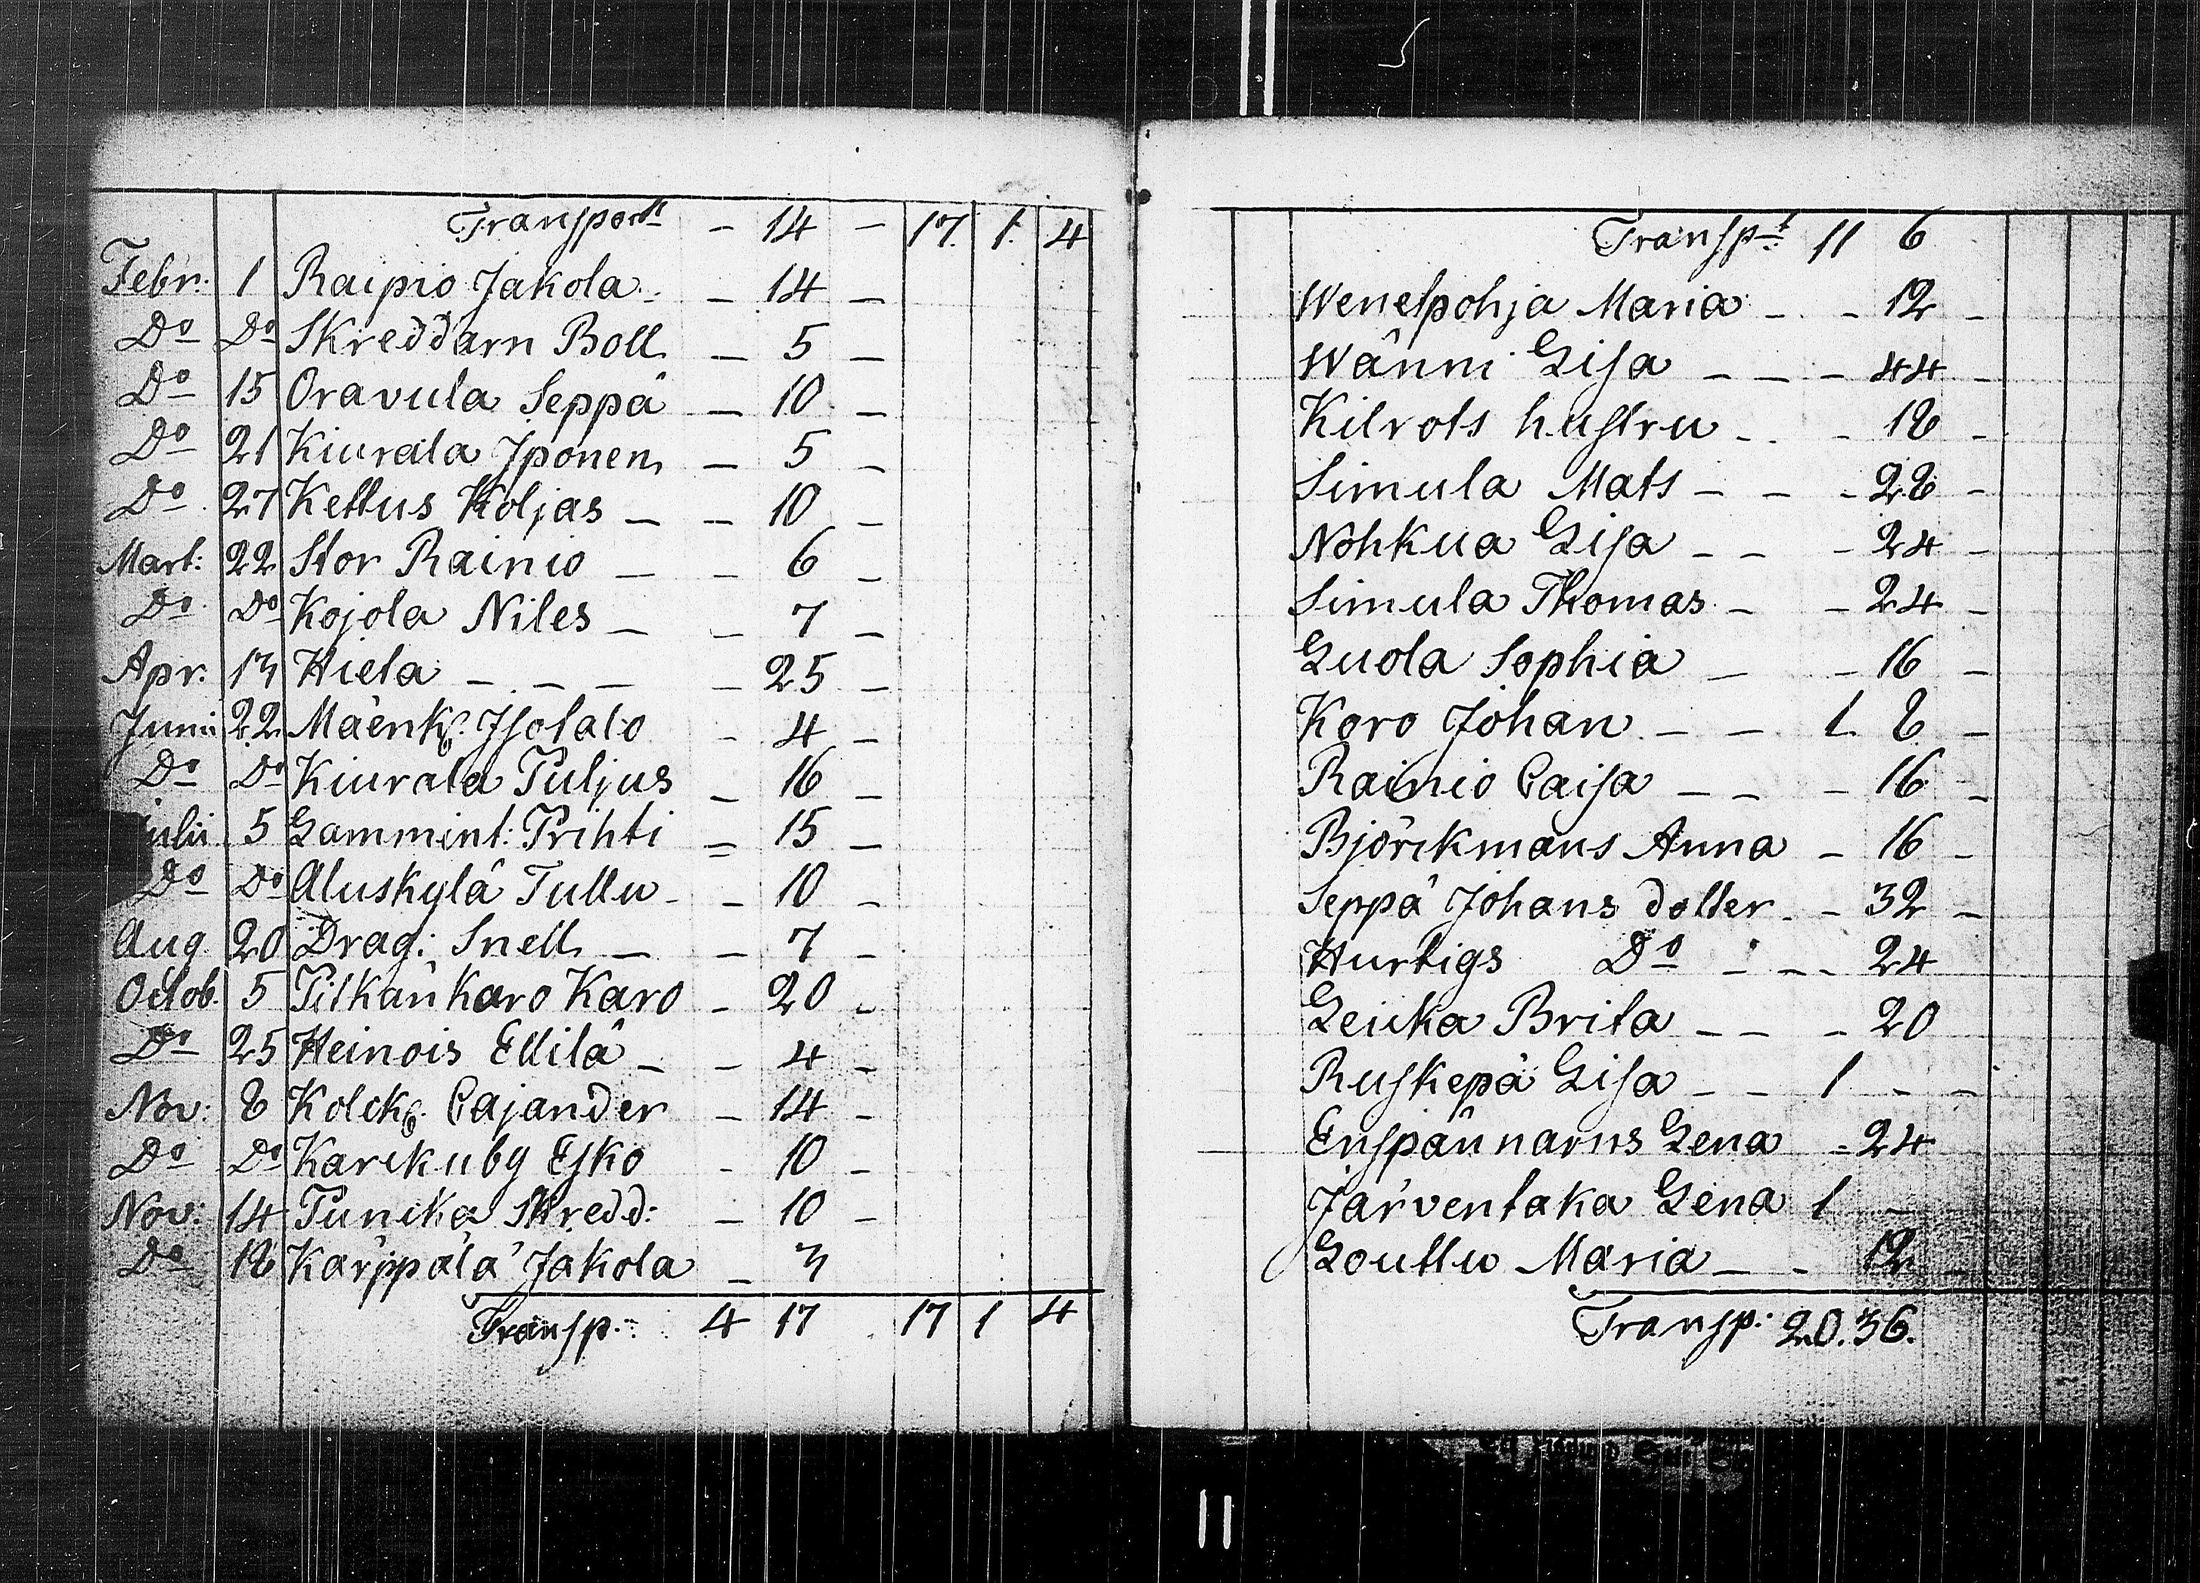 Transport - 14 - 17. 1. 4
Febr. 1 Raipio Jakola - 14 -
Do Do Skreddarn Boll - 5 -
Do 15 Oravula Seppä - 10 -
Do 21 Kiurala Iponen - 5 -
Do 27 Kettus Koljas - - 10 -
Mart: 22 Stor Rainio - - 6 -
Do Do Kojola Niles - - 7 -
Apr: 13 Hiela - - - - 25 -
Junii 22 Mäenk: Isotalo - 4 -
Do Do Kiurala Puljus - 16 -
Julii 5 Lammint: Prihti = 15 -
Do Do Aluskylä Tullu - - 10 -
Aug. 20 Drag: Snell - - 7 -
Octob. 5 Pitkänkaro Karo - 20 -
Do 25 Heinois Ellilä - - 4 -
Nov: 8 Kolck: Cajander - 14 -
Do Do Karckuby Esko - 10 -
Nov: 14 Puncka Skredd: - 10 -
Do 18 Kärppälä Jakola - 3
Transp: 4 17 . 17 1 4
Transpt: 11 6
Wenespohja Maria - - 12 -
Wänni Lisa - - - 44 -
Kilrots hustru - - 18 -
Simula Mats - - - 28 -
Nohkua Lisa - - - 24 -
Simula Thomas - - 24 -
Luola Sophia - - 16 -
Koro Johan - - 1. 8 -
Rainio Caisa - - - 16 -
Björckmans Anna - 16 -
Seppä Johans dotter - - 32 -
Hurtigs Do - - - 24
Leicka Brita - - - 20
Ruskepä Lisa - - 1 - -
Enspännarns Lena = 24
Järventaka Lena 1 -
Louttu Maria - - 12 -
Transp: 20.36.
11